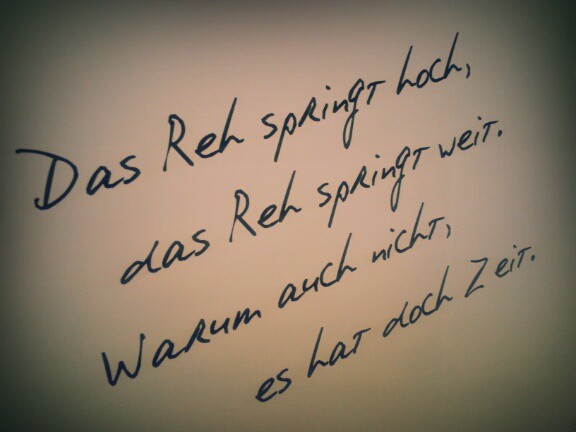 Das Reh springt hoch,
das Reh springt weit.
Warum auch nicht,
es hat doch Zeit.